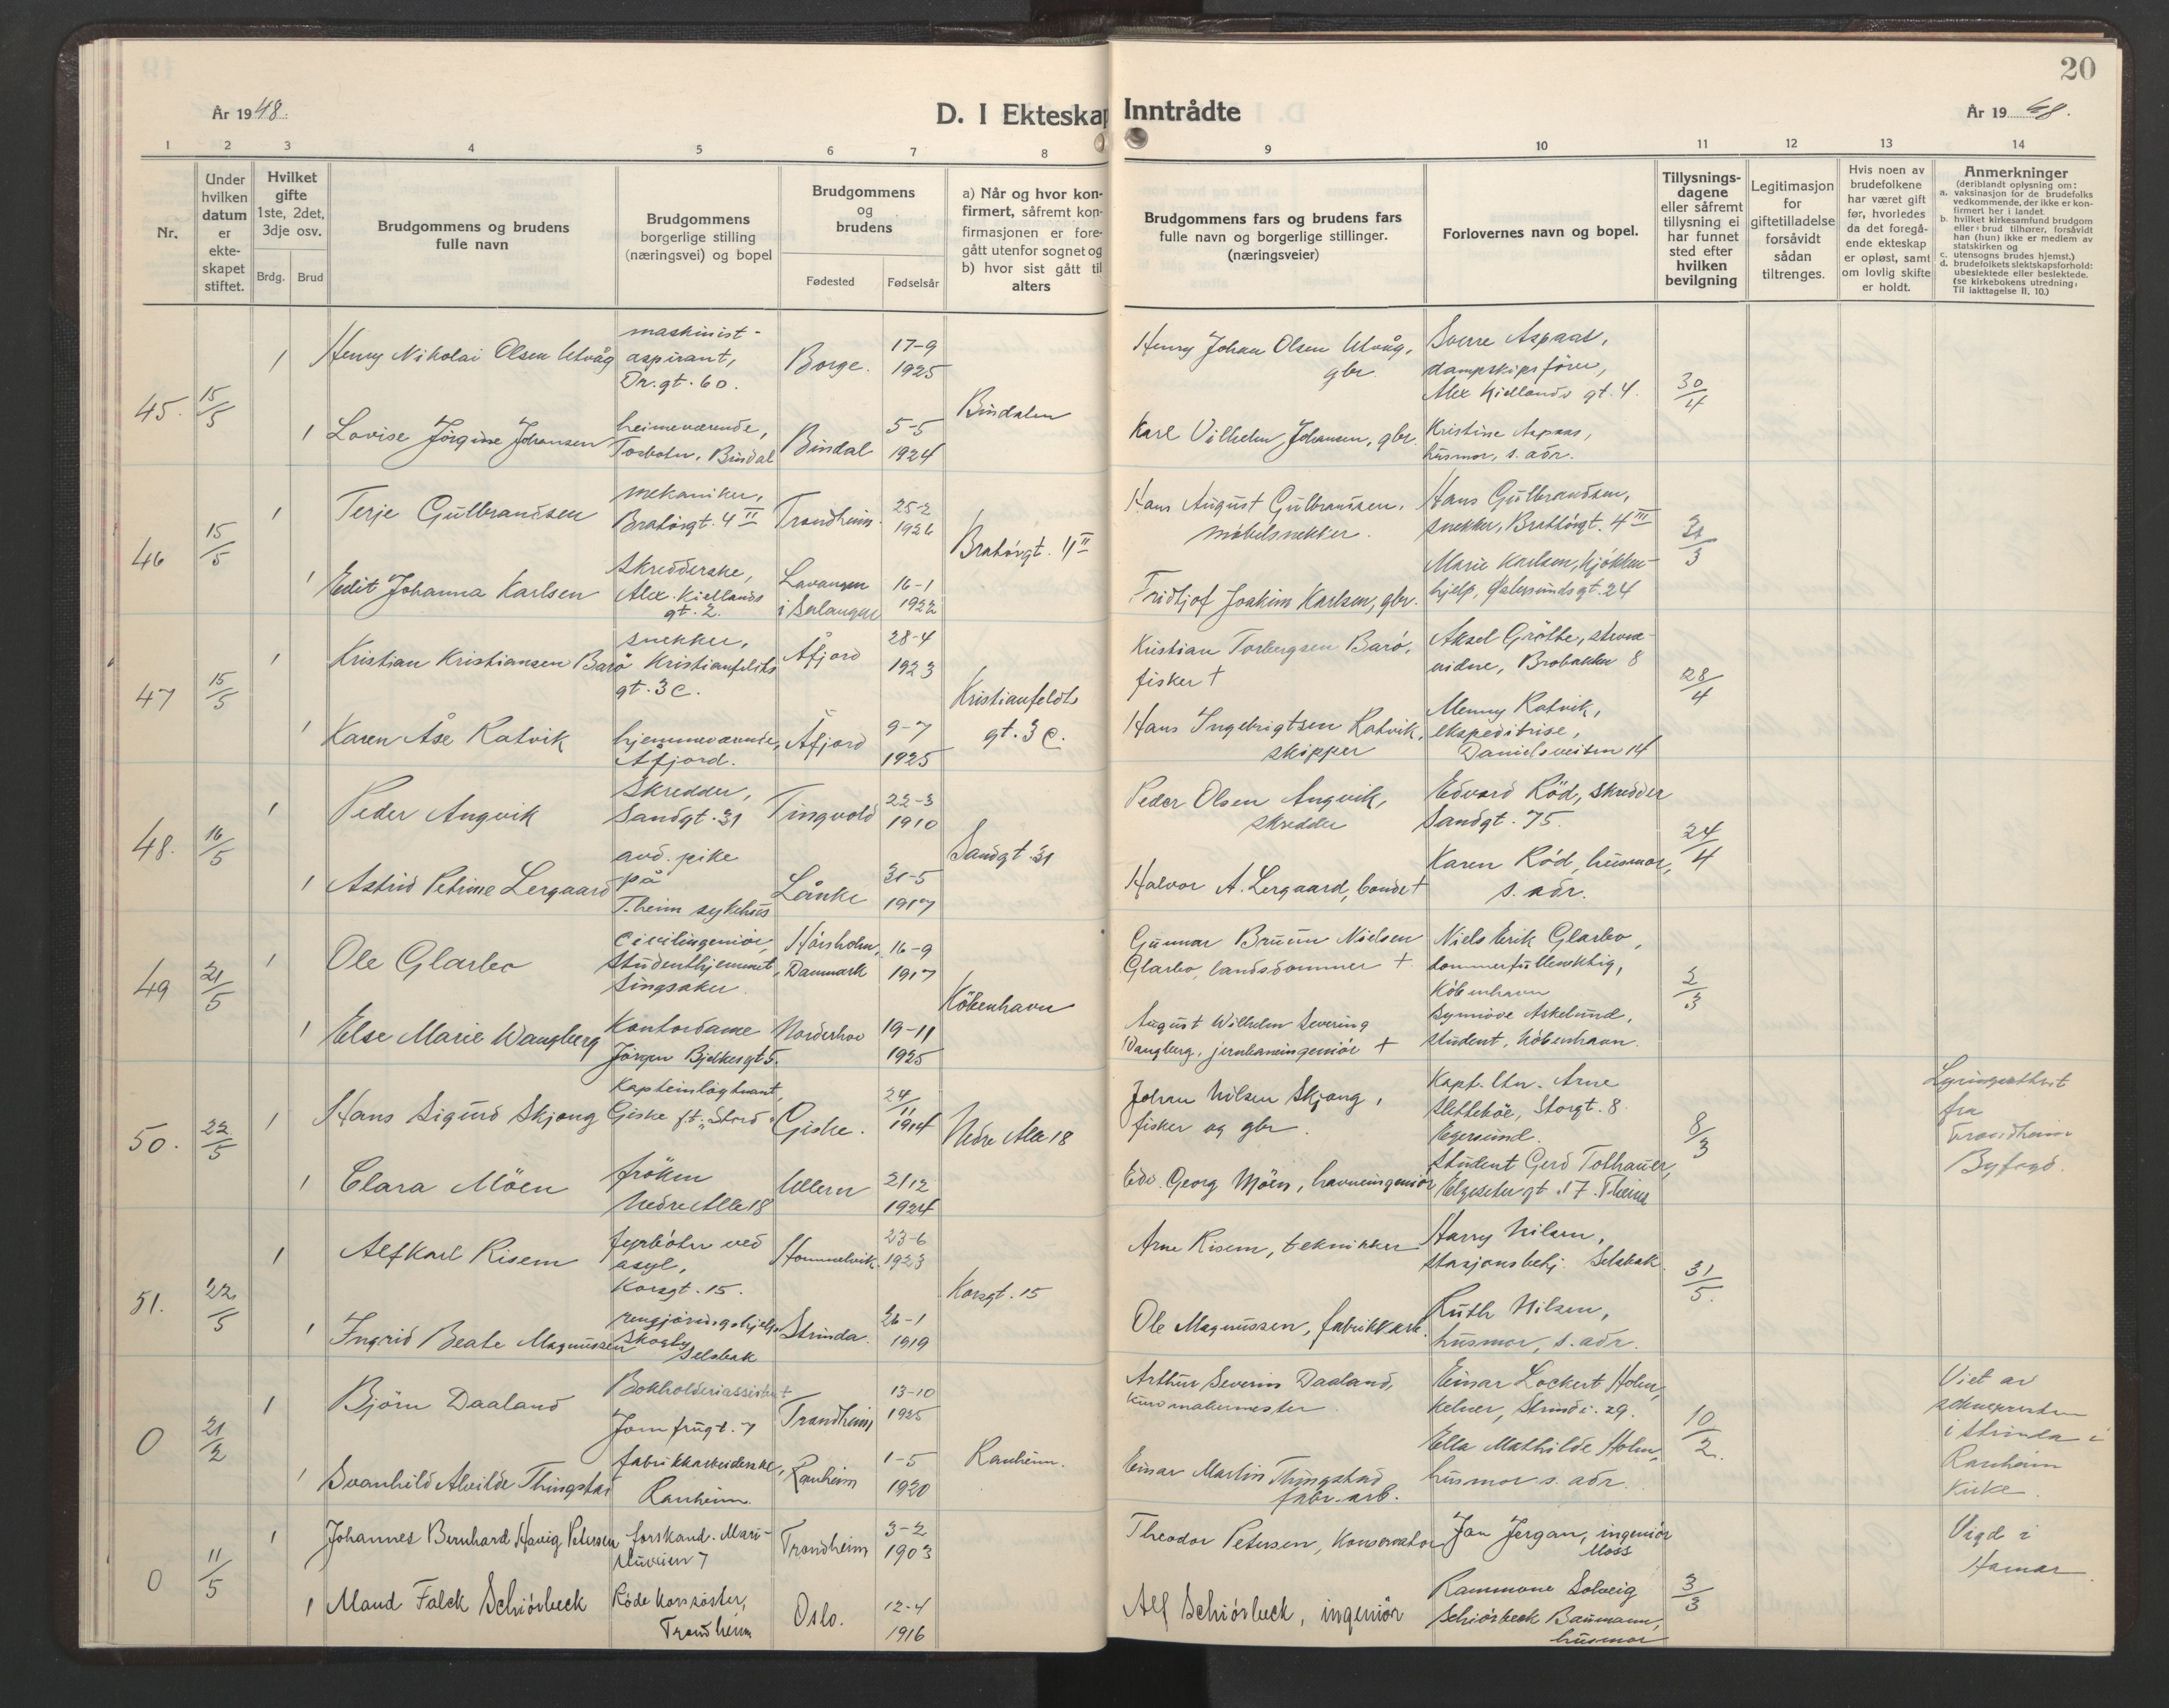 20
År 1948.
D. I Ekteskap Inntrådte
År 1948.
1 2 3 4 5 6 7 8 9 10 11 12 13 14
Nr.
Under hvilken datum er ekte-skapet stiftet.
Hvilket gifte 1ste, 2det, 3dje osv.
Brdg. Brud
Brudgommens og brudens fulle navn
Brudgommens borgerlige stilling (næringsvei) og bopel
Brudgommens og brudens
Fødested Fødselsår
a) Når og hvor kon-
firmert, såfremt kon-
firmasjonen er fore-
gått utenfor sognet og
b) hvor sist gått til
alters
Brudgommens fars og brudens fars
fulle navn og borgerlige stillinger.
(næringsveier)
Forlovernes navn og bopel.
Tillysnings-
dagene
eller såfremt
tillysning ei
har funnet
sted efter
hvilken
bevilgning
Legitimasjon
for
giftetilladelse
forsåvidt
sådan
tiltrenges.
Hvis noen av
brudefolkene
har været gift
før, hvorledes
da det foregå-
ende ekteskap
er opløst, samt
om lovlig skifte
er holdt.
Anmerkninger
(deriblandt oplysning om:
a. vaksinasjon for de brudefolks
vedkommende, der ikke er kon-
firmert her i landet.
b. hvilket kirkesamfund brudgom
eller brud tilhører, forsåvidt
han (hun) ikke er medlem av
statskirken og
c. utensogns brudes hjemst.)
d. brudefolkets slektskapsforhold:
ubeslektede eller beslektede.
(se kirkebokens utredning:
Til iakttagelse II. 10.)
45. 15/5
1 Henry Nikolai Olsen Utvåg
maskinist-
aspirant,
Dr.gt. 60.
Borge. 17-9 1925
Bindalen
Henry Johan Olsen Utvåg,
gbr.
Sverre Aspaas,
dampskipsfører,
Alex Kiellands gt. 4.
30/4
1 Lovise Jørgine Johansen
heimeværende,
Terråk, Bindal
Bindal 5-5 1924
Karl Vilhelm Johansen, gbr.
Kristine Aspaas,
husmor, s. adr.
46 15/5
1 Terje Gulbrandsen
mekaniker,
Bratørgt. 4 II
Trondheim. 25-2 1926
Bratørgt. 4 II
Hans August Gulbrandsen,
møbelsnekker.
Hans Gulbrandsen,
snekker, Brattørgt. 4 III
31/3
1 Edit Johanna Karlsen
Skredderske,
Alex. Kiellands
gt. 2.
Lavangen
i Salangen
16-1 1922
Fridtjof Joakim Karlsen, gbr.
Marie Karlsen, kjøkken-
hjelp, Ålesundsgt. 24
47 15/5
1 Kristian Kristiansen Barø
snekker,
Kristianfeldts
gt. 3c.
Åfjord 28-4 1923
Kristianfeldts
gt. 3c.
Kristian Torbergsen Barø,
fisker †
Aksel Grøtte,
Brobakken 8
28/4
1 Karen Åse Ratvik
hjemmeværende,
Åfjord.
Åfjord 9-7 1925
Hans Ingebrigtsen Ratvik,
skipper
Menny Ratvik,
ekspeditrise,
Danielsveien 14
48. 16/5
1 Peder Angvik
Skredder,
Sandgt. 31
Tingvold 22-3 1910
Sandgt. 31
Peder Olsen Angvik,
skredder
Edvard Rød, skredder
Sandgt. 75.
24/4
1 Astrid Petrine Lergaard
avd. pike
på
T.heim sykehus
Lånke 31-5 1917
Halvor A. Lergaard, bonde †
Karen Rød, husmor,
s. adr.
49 21/5
1 Ole Glarbo
Civilingeniør,
Studenthjemmet,
Singsaker.
Hørsholm,
Danmark
16-9 1917
København
Gunnar Bruun Nielsen
Glarbo, landsdommer †
Niels Erik Glarbo,
dommerfullmektig,
København
3/3
1 Else Marie Wangberg
Kontordame
Jørgen Bjelkesgt 5.
Norderhov 19-11 1925
August Wilhelm Severing
Wangberg, jernbaneingeniør †
Synnøve Askelund,
student, København.
50. 22/5
1 Hans Sigurd Skjong
Kapteinløytnant,
Giske f.t. "Stord"
Giske. 24/11 1914
Nedre Alle 18
Johan Nilsen Skjong,
fisker og gbr.
Kapt. ltn. Arne
Slettebøe, Storgt. 8.
Egersund.
8/3
fra
Trondheim
Byfogd.
1 Clara Möen
frøken
Nedre Alle 18
Ullern 21/12 1924
Edv. Georg Möen, havneingeniør
Student Gerd Tothauer,
Elgeseter gt. 17. Theim
51. 22/5
1 Alf Karl Risem
fyrbøter ved
asyl,
Korsgt. 15.
Hommelvik. 23-6 1923
Korsgt. 15
Arne Risem, tekniker
Harry Nilsen,
stasjonsbetj. Selsbak.
31/5.
1 Ingrid Beate Magnussen
rengjøringshjelp
Skogly
Selsbak
Strinda. 26-1 1919
Ole Magnussen, fabrikkarb.
Ruth Nilsen,
husmor, s. adr.
0 21/2
1 Bjørn Daaland
Bokholderiassistent
Jomfrugt. 7
Trondheim 13-10 1925
Ranheim.
Arthur Severin Daaland,
Einar Lockert Holm,
kelner, Strindv. 29.
10/2
Viet av
soknepresten
i Strinda i
Ranheim
Kirke.
1 Svanhild Alvilde Thingstad
fabrikkarbeiderske,
Ranheim.
Ranheim 1-5 1920
Einar Martin Thingstad
fabr. arb.
Ella Mathilde Holm,
husmor s. adr.
0 11/5
1 Johannes Bernhard Havig Petersen
forskand. Mari-
Trondheim 3-2 1903
Theodor Petersen, Konservator
Jan Jørgan, ingeniør
Moss
3/3
Vigd i
Hamar.
1 Maud Falck Schiørbeck
Røde Korssøster,
Trondheim
Oslo. 12-4 1916
Alf Schiørbeck, ingeniør
Solveig
Schiørbeck Baumann,
husmor